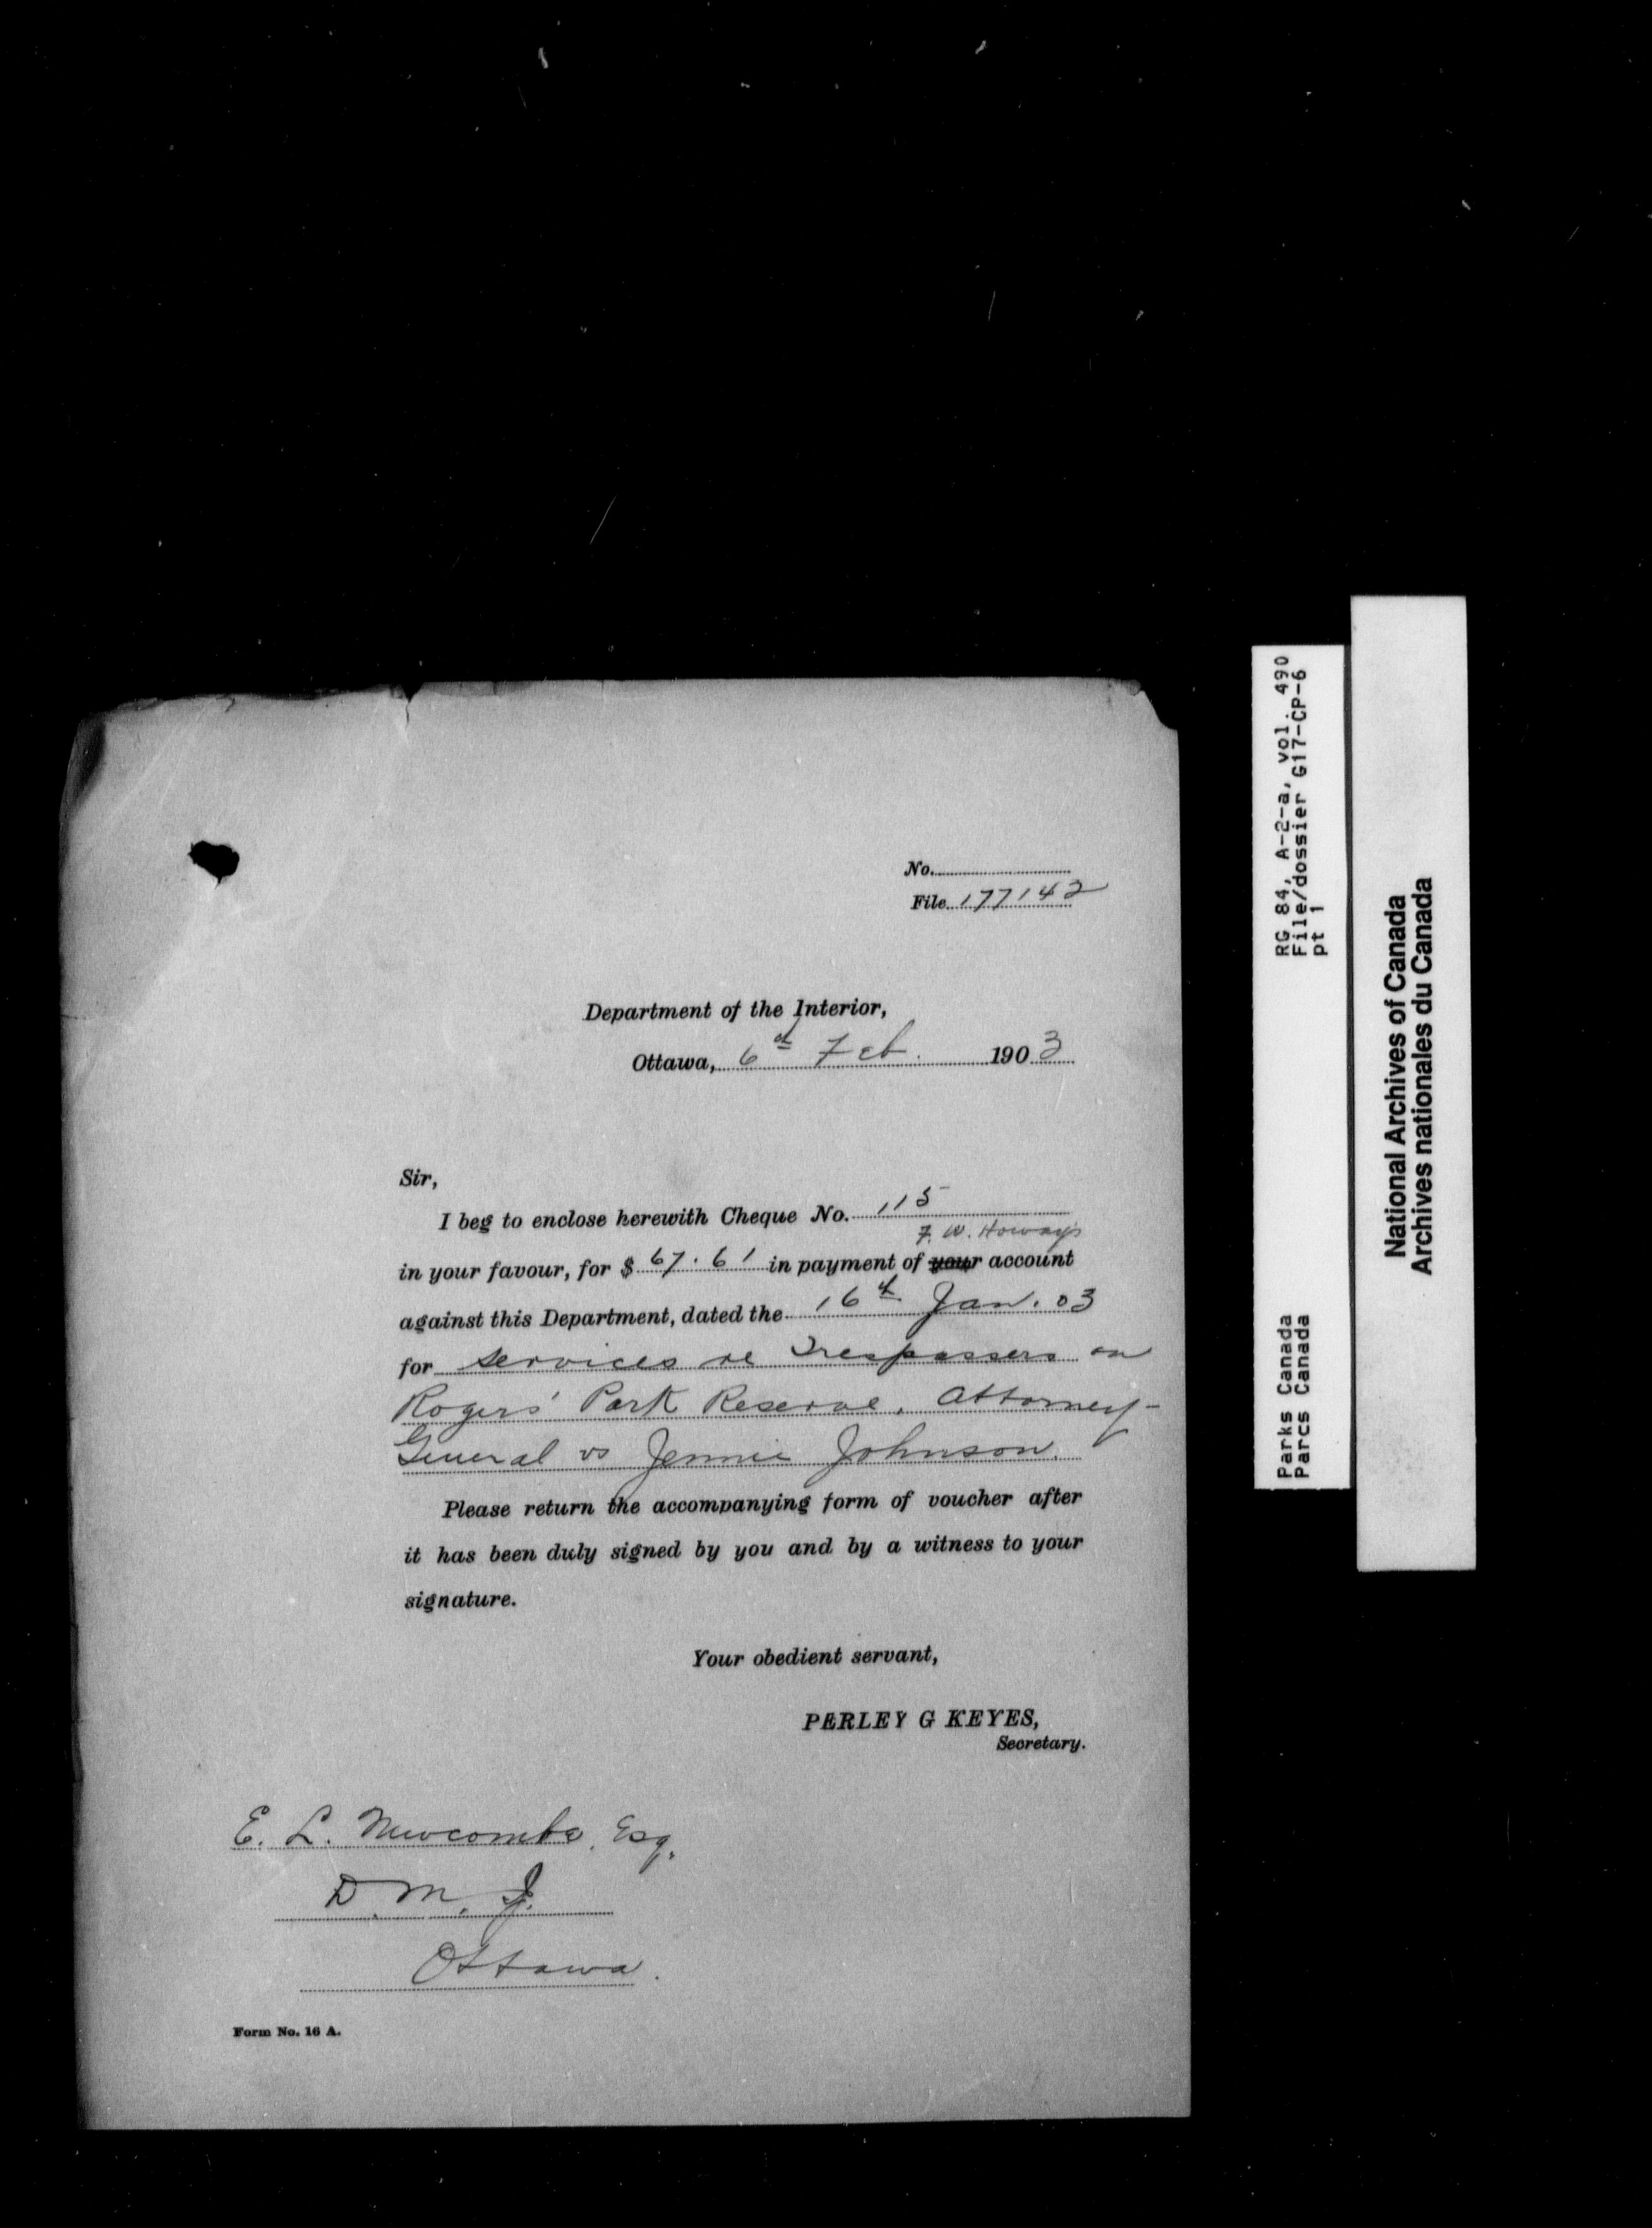 No.
File 177142
Department of the Interior,
Ottawa, 6th Feb. 1903
Sir,
I beg to enclose herewith Cheque No. 115
F. W. Howay's
in your favour, for $ 67.61 in payment of your account
against this Department, dated the 16th Jan. 03
for services re Trespassers on
Rogers' Park Reserve. Attorney-
General vs Jennie Johnson.
Please return the accompanying form of voucher after
it has been duly signed by you and by a witness to your
signature.
Your obedient servant,
PERLEY G KEYES,
Secretary.
E. L. Newcombe, Esq.
D. M. J.
Ottawa.
Form No. 16 A.
RG 84, A-2-a, vol. 490
File/dossier G17-CP-6
pt 1
Parks Canada
Parcs Canada
National Archives of Canada
Archives nationales du Canada